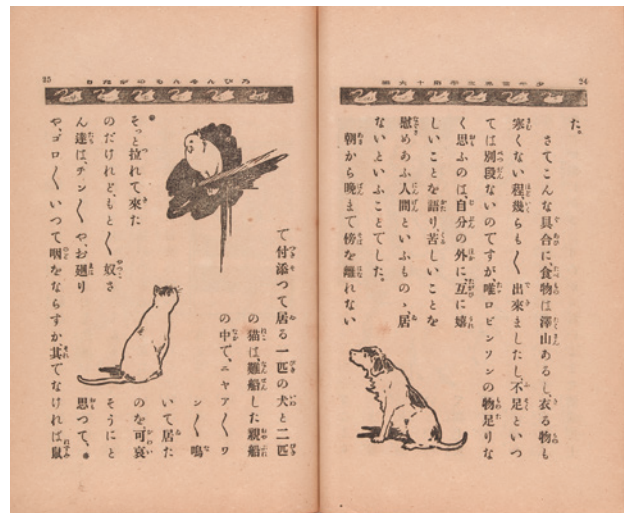 24
た。
さてこんな具合に食物は澤山あるし、衣る物も
寒くない程、幾らも〱出來ましたし、不足といつ
ては別段ないのですが、唯ロビンソンの物足りな
く思ふのは、自分の外に、互に嬉
しいことを語り、苦しいことを
慰めあふ人間といふものゝ居
ないといふことでした。
朝から晩まで傍を離れない
25
て付添つて居る一匹の犬と二匹
の猫は、難船した親船
の中で、ニヤア〱ワ
ン〱鳴
いて居た
のを、可哀
そうにと
思つて、
そつと拉れて來た
のだけれど、もと〱奴さ
ん達は、チン〱や、お廻り
や、ゴロ〱いつて咽をならすか、其でなければ鼠